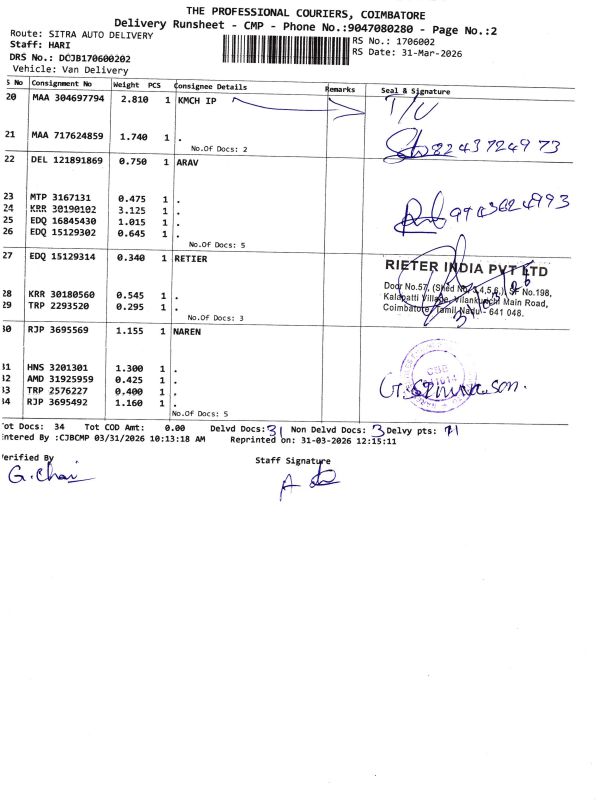 THE PROFESSIONAL COURIERS, COIMBATORE
Delivery Runsheet - CMP - Phone No.:9047080280 - Page No.:2
Route: SITRA AUTO DELIVERY
RS No.: 1706002
Staff: HARI
RS Date: 31-Mar-2026
DRS No.: DCJB170600202
Vehicle: Van Delivery
S No Consignment No Weight PCS Consignee Details Remarks Seal & Signature
20 MAA 304697794 2.810 1 KMCH IP
21 MAA 717624859 1.740 1 . 8243724973
No.Of Docs: 2
22 DEL 121891869 0.750 1 ARAV
23 MTP 3167131 0.475 1 .
24 KRR 30190102 3.125 1 . 9943624993
25 EDQ 16845430 1.015 1 .
26 EDQ 15129302 0.645 1 .
No.Of Docs: 5
27 EDQ 15129314 0.340 1 RETIER
RIETER INDIA PVT LTD
Door No.57, (Shed No. 3,4,5,6,), SF No.198,
28 KRR 30180560 0.545 1 .
Kalapatti Village, Vilankurichi Main Road,
29 TRP 2293520 0.295 1 .
Coimbatore, Tamil Nadu - 641 048.
No.Of Docs: 3
30 RJP 3695569 1.155 1 NAREN
31 HNS 3201301 1.300 1 .
32 AMD 31925959 0.425 1 .
33 TRP 2576227 0.400 1 .
34 RJP 3695492 1.160 1 .
No.Of Docs: 5
Tot Docs: 34 Tot COD Amt: 0.00 Delvd Docs: 31 Non Delvd Docs: 3 Delvy pts: 11
Entered By :CJBCMP 03/31/2026 10:13:18 AM Reprinted on: 31-03-2026 12:15:11
Verified By
Staff Signature